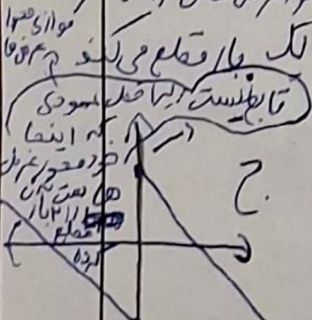 موازی محور
یک بار قطع می‌کند
تابع نیست زیرا خط عمودی
که اینجا
خود محور عرض
ها هست آن
را ۲ بار
قطع
کرده
ج